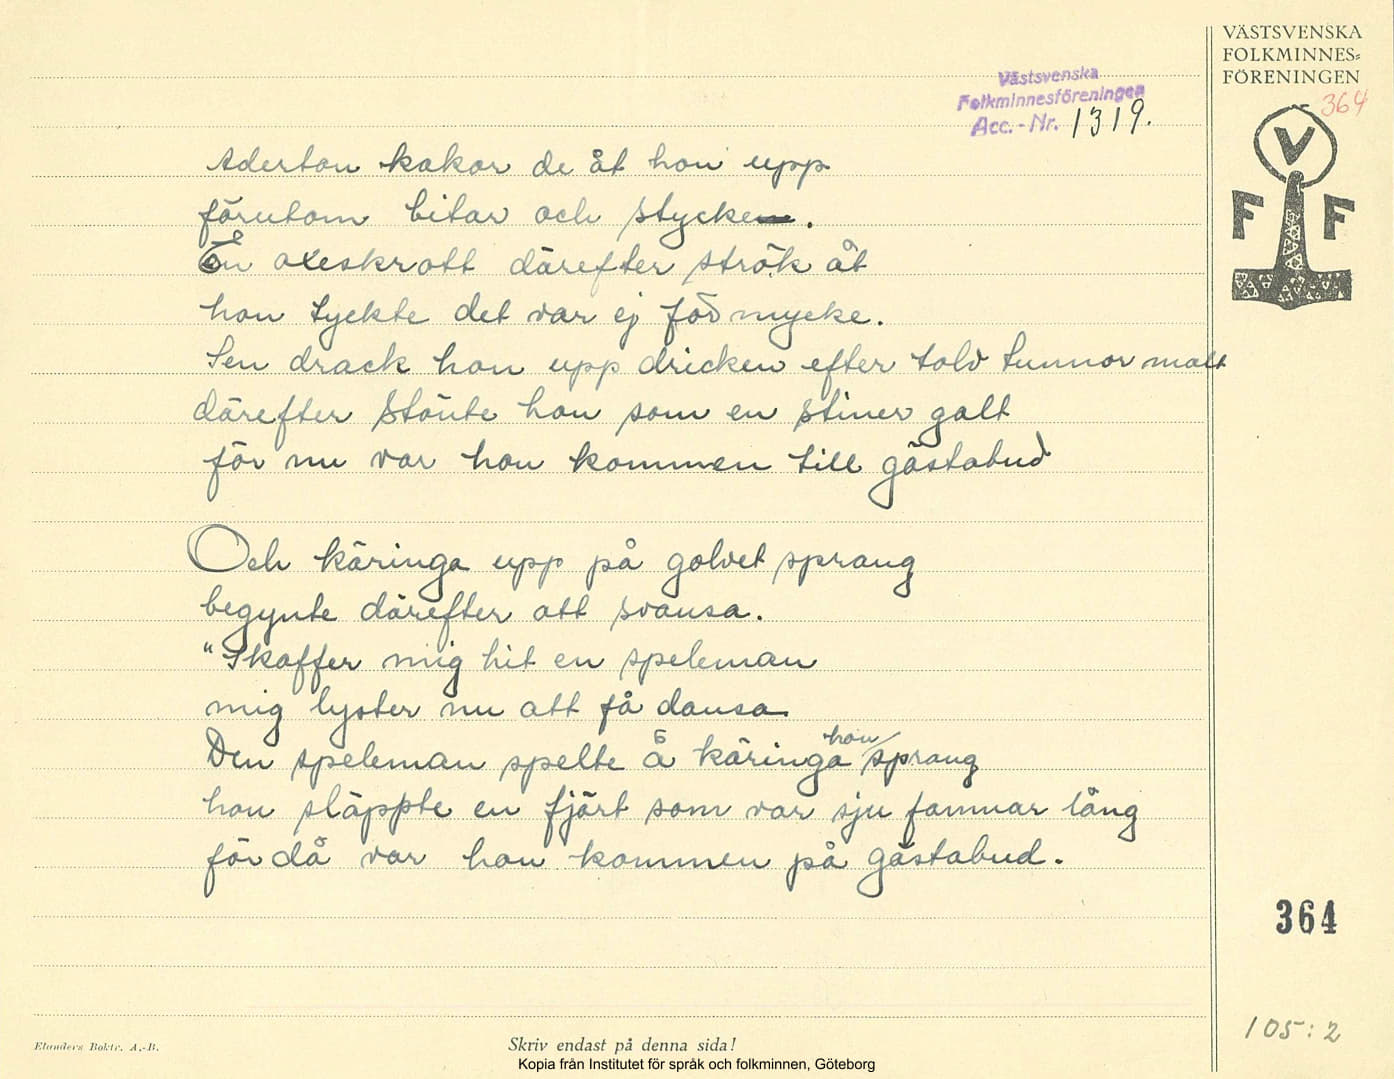 VÄSTSVENSKA
FOLKMINNES=
FÖRENINGEN
364
Västsvenska
Folkminnesföreningen
Acc.-Nr. 1319.
V
F F
Aderton kakor de åt hon upp
förutom bitar och stycke.
En oxeskrott därefter strök åt
hon tyckte det var ej för mycke.
Sen drack hon upp dricken efter tolv tunnor malt
därefter stönte hon som en stiner galt
för nu var hon kommen till gästabud
Och käringa upp på golvet sprang
begynte därefter att svansa.
"Skaffer mig hit en speleman
mig lyster nu att få dansa
Den speleman spelte å käringa hon sprang
hon släppte en fjärt som var sju famnar lång
för då var hon kommen på gästabud.
364
105:2
Elanders Boktr. A.-B.
Skriv endast på denna sida!
Kopia från Institutet för språk och folkminnen, Göteborg